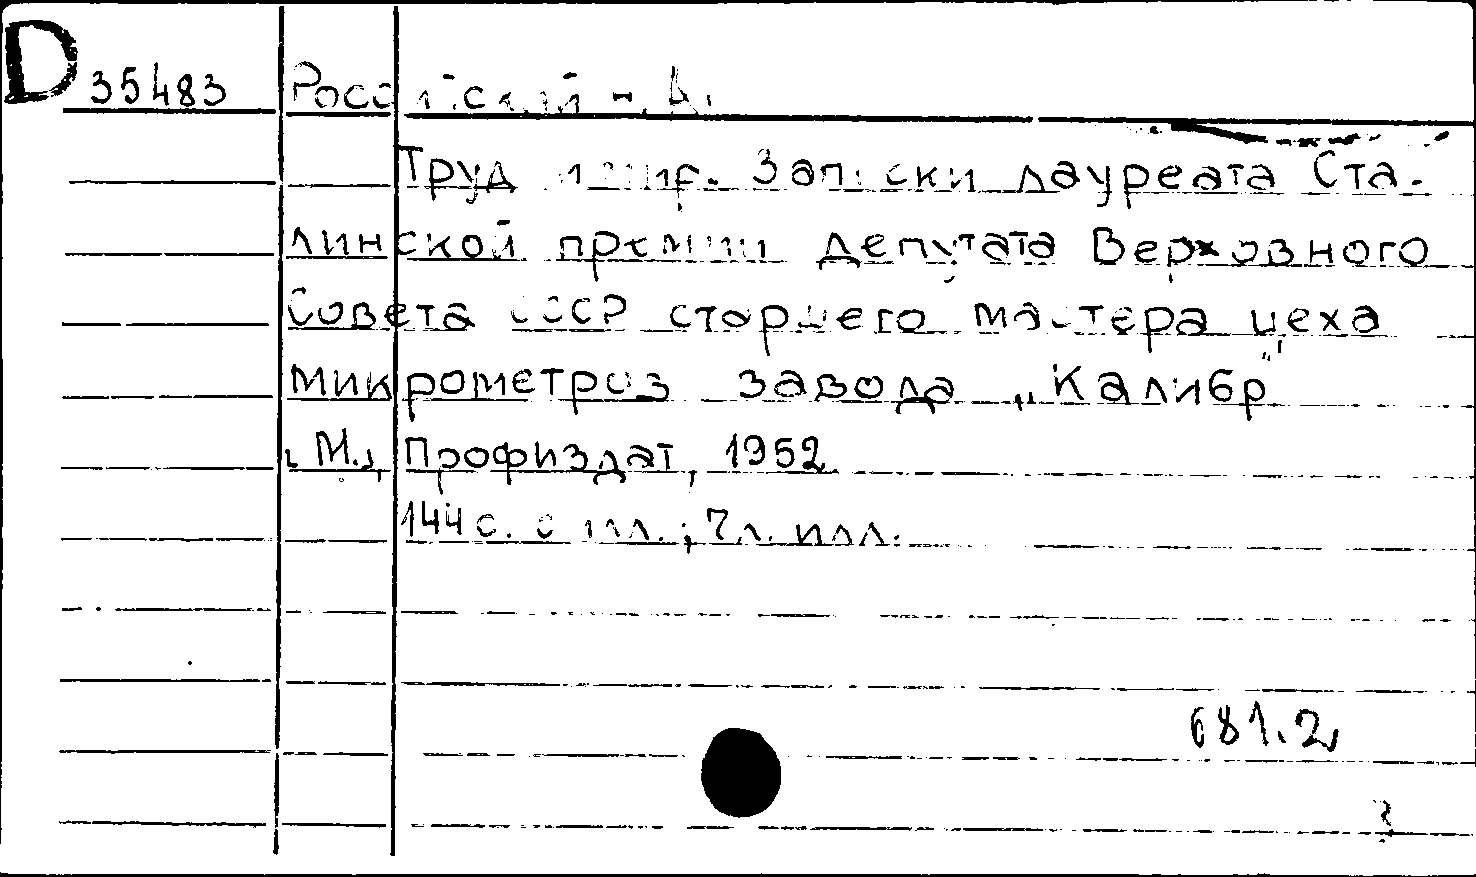 D 35483 Российский Н. А.
Труд и мир. Записки лауреата Ста-
линской премии депутата Верховного
Совета СССР старшего мастера цеха
микрометров завода „Калибр"
М., Профиздат, 1952
144 с. с илл.; 7 л. илл.
681.2